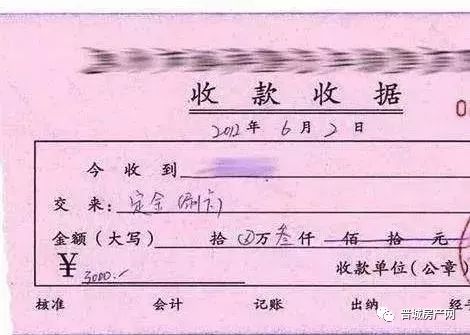 收款收据
0
2012年6月2日
今收到
交来:定金(刷卡)
金额(大写) 拾 万叁仟 佰 拾 元
¥3000.- 收款单位(公章)
核准 会计 记账 出纳 经手
晋城房产网